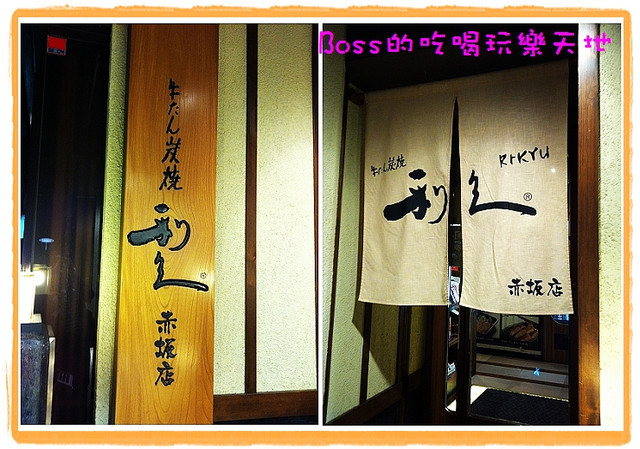 Boss的吃喝玩樂天地
牛たん炭焼
利久
赤坂店
牛たん炭焼
利久
RIKYU
赤坂店